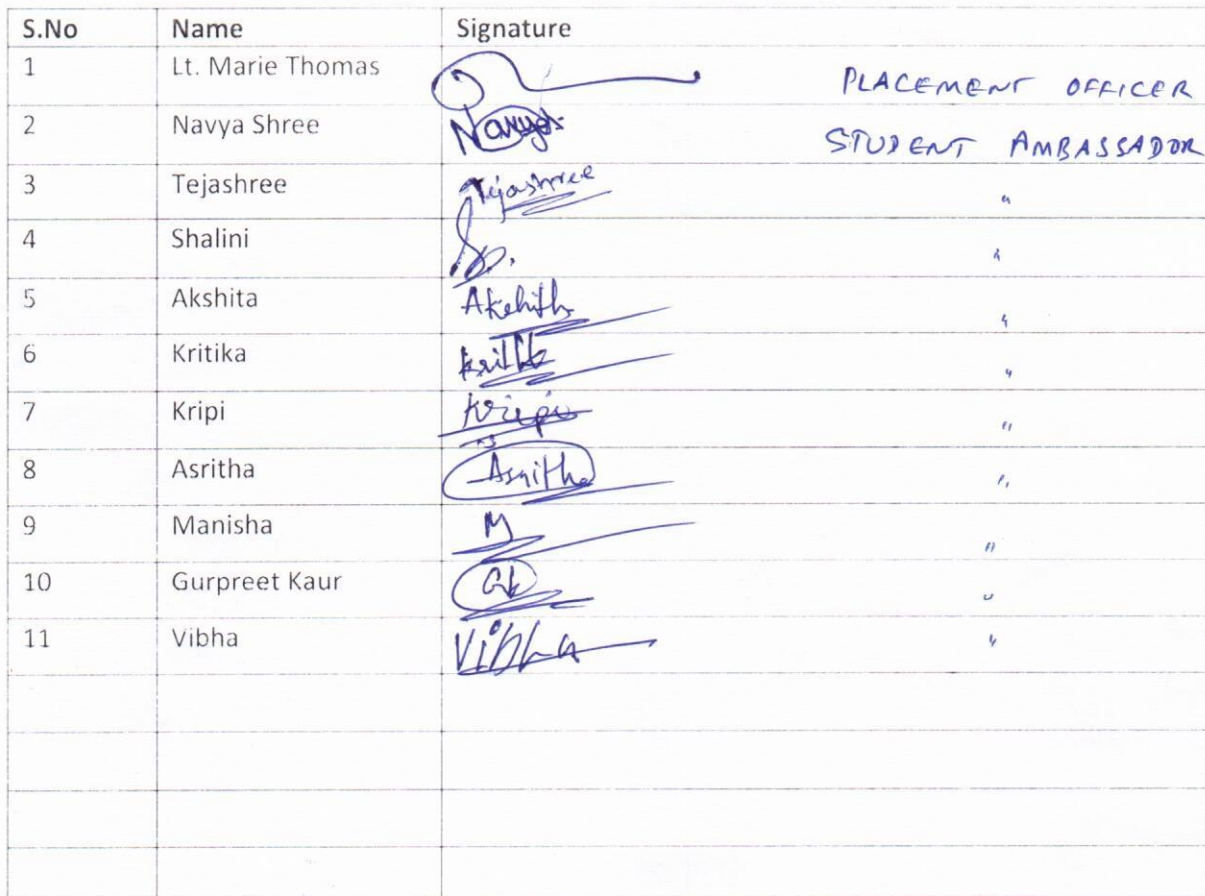 S.No Name Signature
1 Lt. Marie Thomas PLACEMENT OFFICER
2 Navya Shree Navya STUDENT AMBASSADOR
3 Tejashree Tejashree "
4 Shalini "
5 Akshita "
6 Kritika "
7 Kripi "
8 Asritha Asritha "
9 Manisha M "
10 Gurpreet Kaur GK "
11 Vibha Vibha "